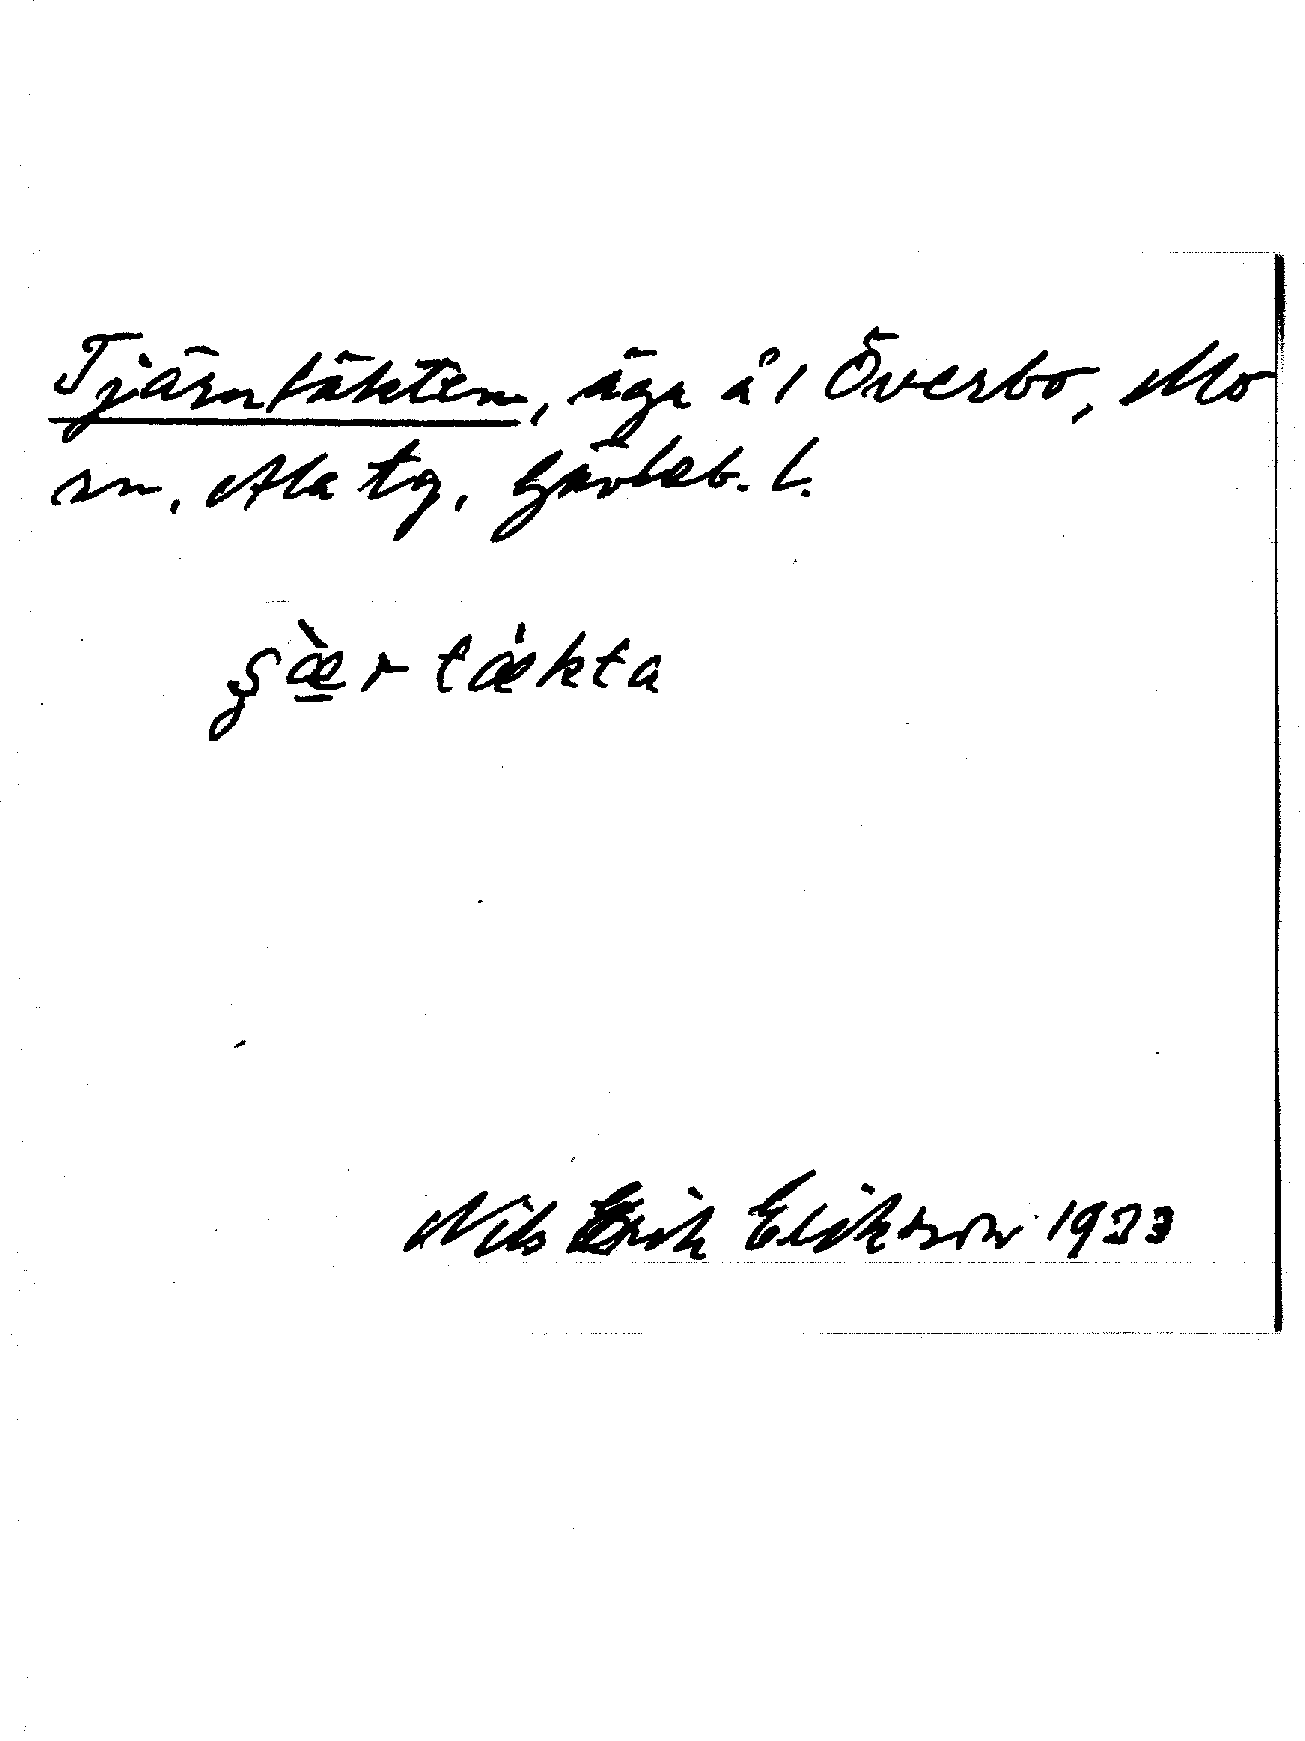 Tjärntäkten, äga å 1 Överbo, Mo
sn. Ala tg. Gävleb. l.
ʂæ̀r tækta
Nils Erik Erikson 1933